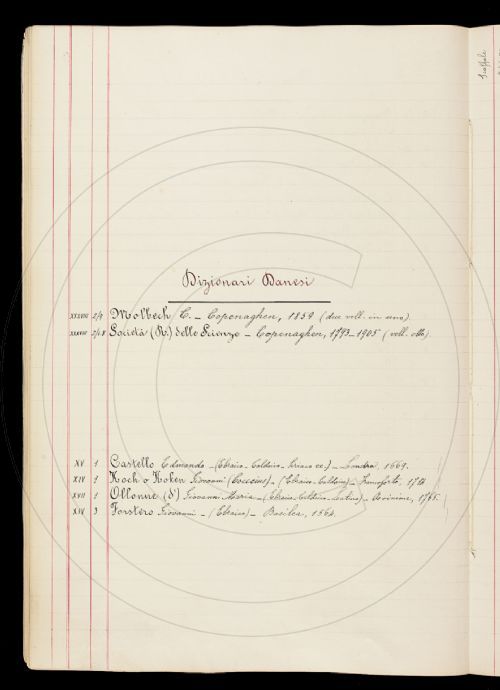 Dizionari Danesi
XXXVIII 2/4 Molbech C. – Copenaghen, 1859 (due voll. in uno).
XXXVIII Società (R.) delle Scienze – Copenaghen, 1793–1905 (voll. otto).
XV 1 Castello Edmondo – (Ebraico-Caldaico-Siriaco ec.) – Londra, 1669.
XIV 1 Koch o Koken Giovanni (Cocceius) – (Ebraico-Caldaico) – Francoforte, 1714
XVII 1 Ollonne (d') Giovanni Maria – (Ebraico-Caldaico-Latino) – Avinione, 1765.
XIV 3 Forstero Giovanni – (Ebraico) – Basilea, 1564.